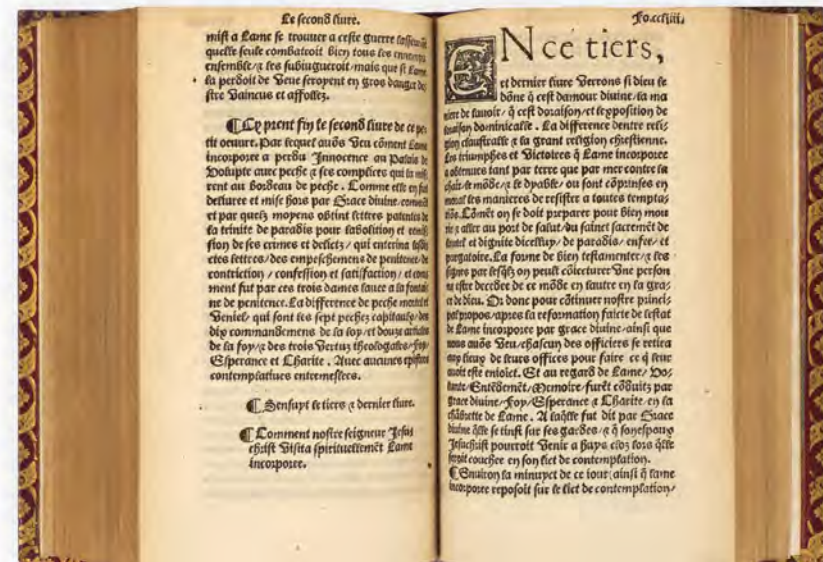 Le second liure.
mist a Lame se trouuer a ceste guerre
quelle seule combatroit bien tous les ennemys
ensemble/⁊ les subiugueroit/mais que si Lame
la perdoit de veue seroyent en gros danger de
stre vaincus et affollez.
¶ Cy prent fin le second liure de ce pe
tit oeuure. Par lequel auõs veu cõment Lame
incorporee a perdu Innocence au Palais de
Volupte auec peche ⁊ ses complices qui la mi
rent au Bordeau de peche. Comme elle en fut
desliuree et mise hors par Grace diuine/
et par quelz moyens obtint lettres patentes de
la trinite de paradis pour labolition et remis
sion de ses crimes et delictz/ qui enterina lesdi
ctes lettres/des empeschemens de penitence/de
contriction/ confession et satiffaction/ et com
ment fut par ces trois dames lauee a la fontai
ne de penitence. La difference de peche mortel et
Veniel/ qui sont les sept pechez capitaulx/des
dix commandemens de la loy/et douze articles
de la foy/⁊ des trois Vertus theologales/Foy/
Esperance et Charite. Auec aucunes epistres
contemplatiues entremeslees.
¶ Sensuyt le tiers ⁊ dernier liure.
¶ Comment nostre seigneur Jesus
christ visita spirituellemẽt Lame
incorporee.
Fo.ccliiii.
EN ce tiers,
et dernier liure Verrons si dieu le
dõne q̃ cest damour diuine/la ma
niere de lauoir/ q̃ cest doraison/et lexposition de
loraison dominicalle. La difference dentre reli
gion claustralle ⁊ la grant religion chrestienne.
Les triumphes et Victoires q̃ Lame incorporee
a obtenues tant par terre que par mer contre la
chair/le mõde/⁊ le dyable/ ou sont cõprinses en
moral les manieres de resister a toutes tempta
tiõs. Cõmẽt on se doit preparer pour bien mou
rir ⁊ aller au port de salut/du sainct sacremẽt de
lautel et dignite dicelluy/ de paradis/ enfer/ et
purgatoire. La forme de bien testamenter/⁊ les
signes par lesq̃lz on peult cõiecturer vne person
ne estre decedee de ce mõde en lautre en la gra
ce de dieu. Or donc pour cõtinuer nostre princi
pal propos/apres la reformation faicte de lestat
de Lame incorporee par grace diuine/ainsi que
nous auõs Veu/chascun des officiers se retira
au lieux de leurs offices pour faire ce q̃ leur
auoit este enioict. Et au regard de Lame/ Vo
lente/Entẽdemẽt/Memoire/furẽt cõduitz par
grace diuine/Foy/Esperance ⁊ Charite/en la
chãbrette de Lame. A laq̃lle fut dit par Grace
diuine q̃lle se tinst sur ses gardes/⁊ q̃ sonespous
Jesuchrist pourroit Venir a huys clos lors q̃lle
seroit couchee en son lict de contemplation.
¶ Enuiron la minuyct de ce iour/ainsi q̃ lame
incorporee reposoit sur le lict de contemplation/